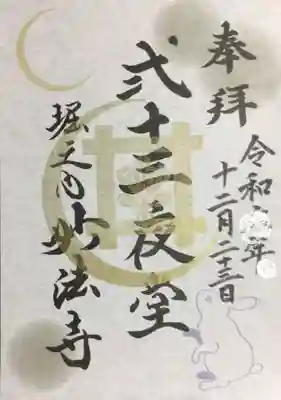 奉拝
令和 年
十二月二十三日
弐十三夜堂
堀之内妙法寺